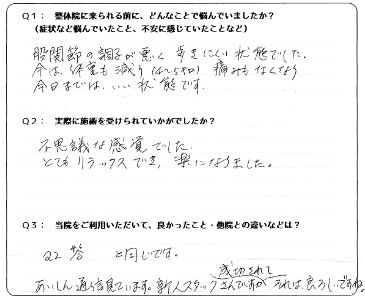 Q1： 整体院に来られる前に、どんなことで悩んでいましたか？
（症状など悩んでいたこと、不安に感じていたことなど）
股関節の調子が悪く 歩きにくい状態でした。
今は、体重も減り（4~5キロ）痛みもなくなり
今日までは、‥‥状態です。
Q2： 実際に施術を受けられていかがでしたか？
不思議な感覚でした
とてもリラックスでき、楽になりました。
Q3： 当院をご利用いただいて、良かったこと・他院との違いなどは？
Q2 答 と同じです。
成功されて
新人スタッフさんですが うれば、良ろしいですね。